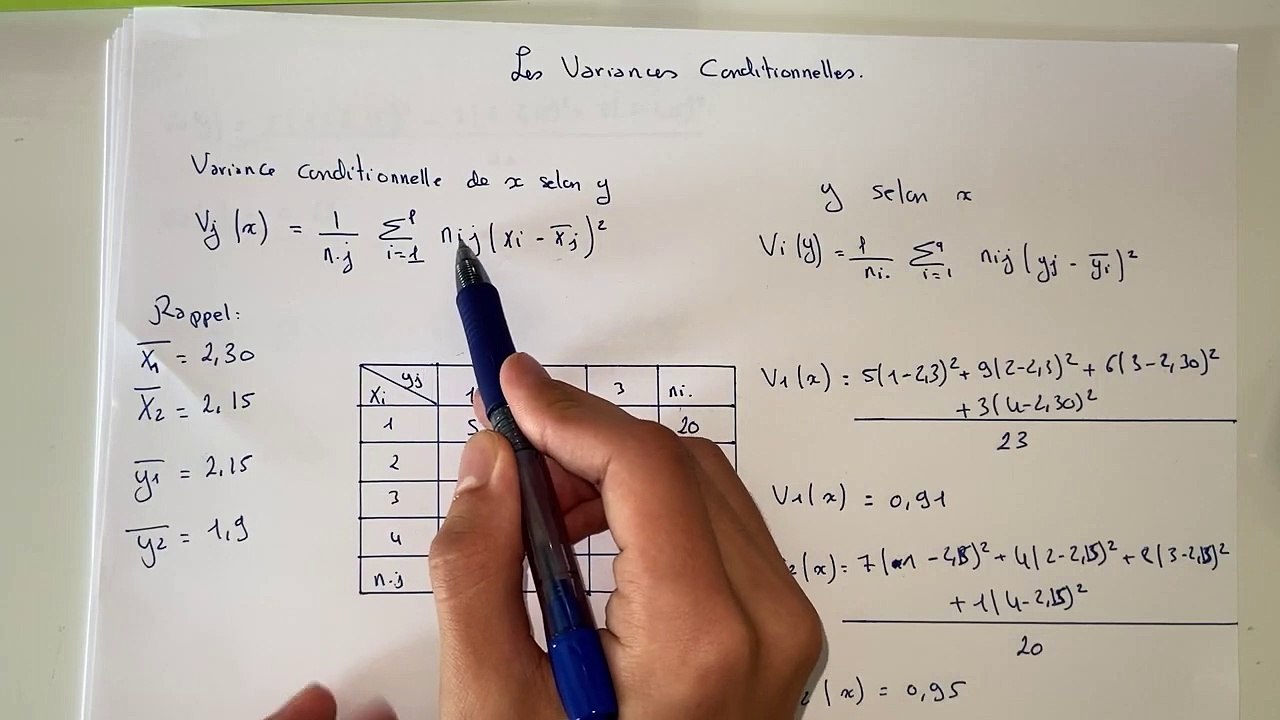 Les Variances Conditionnelles.
Variance conditionnelle de x selon y
Vj (x) = 1/n.j Σ^p_{i=1} nij (xi - x̄j)²
y selon x
Vi (y) = 1/ni. Σ^q_{i=1} nij (yj - ȳi)²
Rappel:
x̄1 = 2,30
x̄2 = 2,15
ȳ1 = 2,15
ȳ2 = 1,9
yj
xi 1 3 ni.
1 5 20
2
3
4
n.j
V1 (x) = 5(1-2,3)² + 9(2-2,3)² + 6(3-2,30)²
+ 3(4-2,30)²
23
V1 (x) = 0,91
2 (x) = 7(1 - 2,15)² + 4(2-2,15)² + 8(3-2,15)²
+ 1(4-2,15)²
20
2 (x) = 0,95